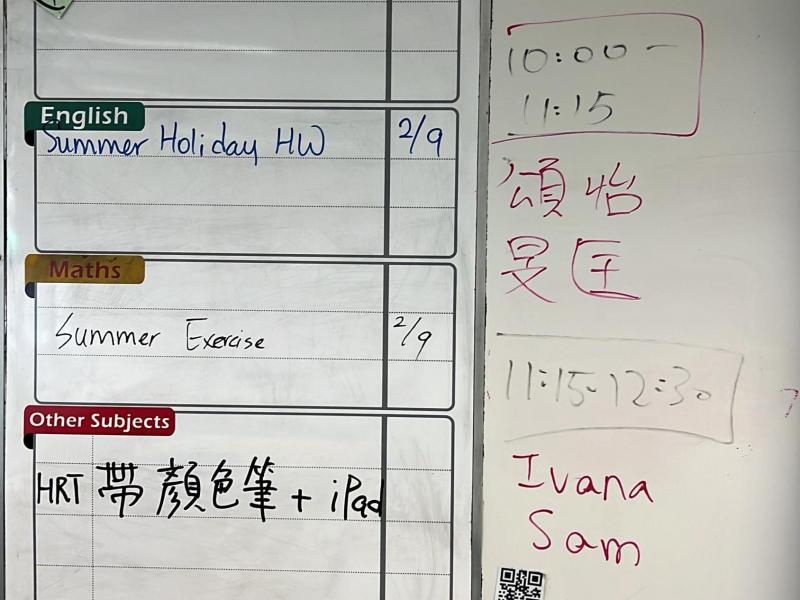 English
Summer Holiday HW 2/9
Maths
Summer Exercise 2/9
Other Subjects
HRT 帶顏色筆 + iPad
10:00 -
11:15
頌怡
旻匡
11:15-12:30
Ivana
Sam